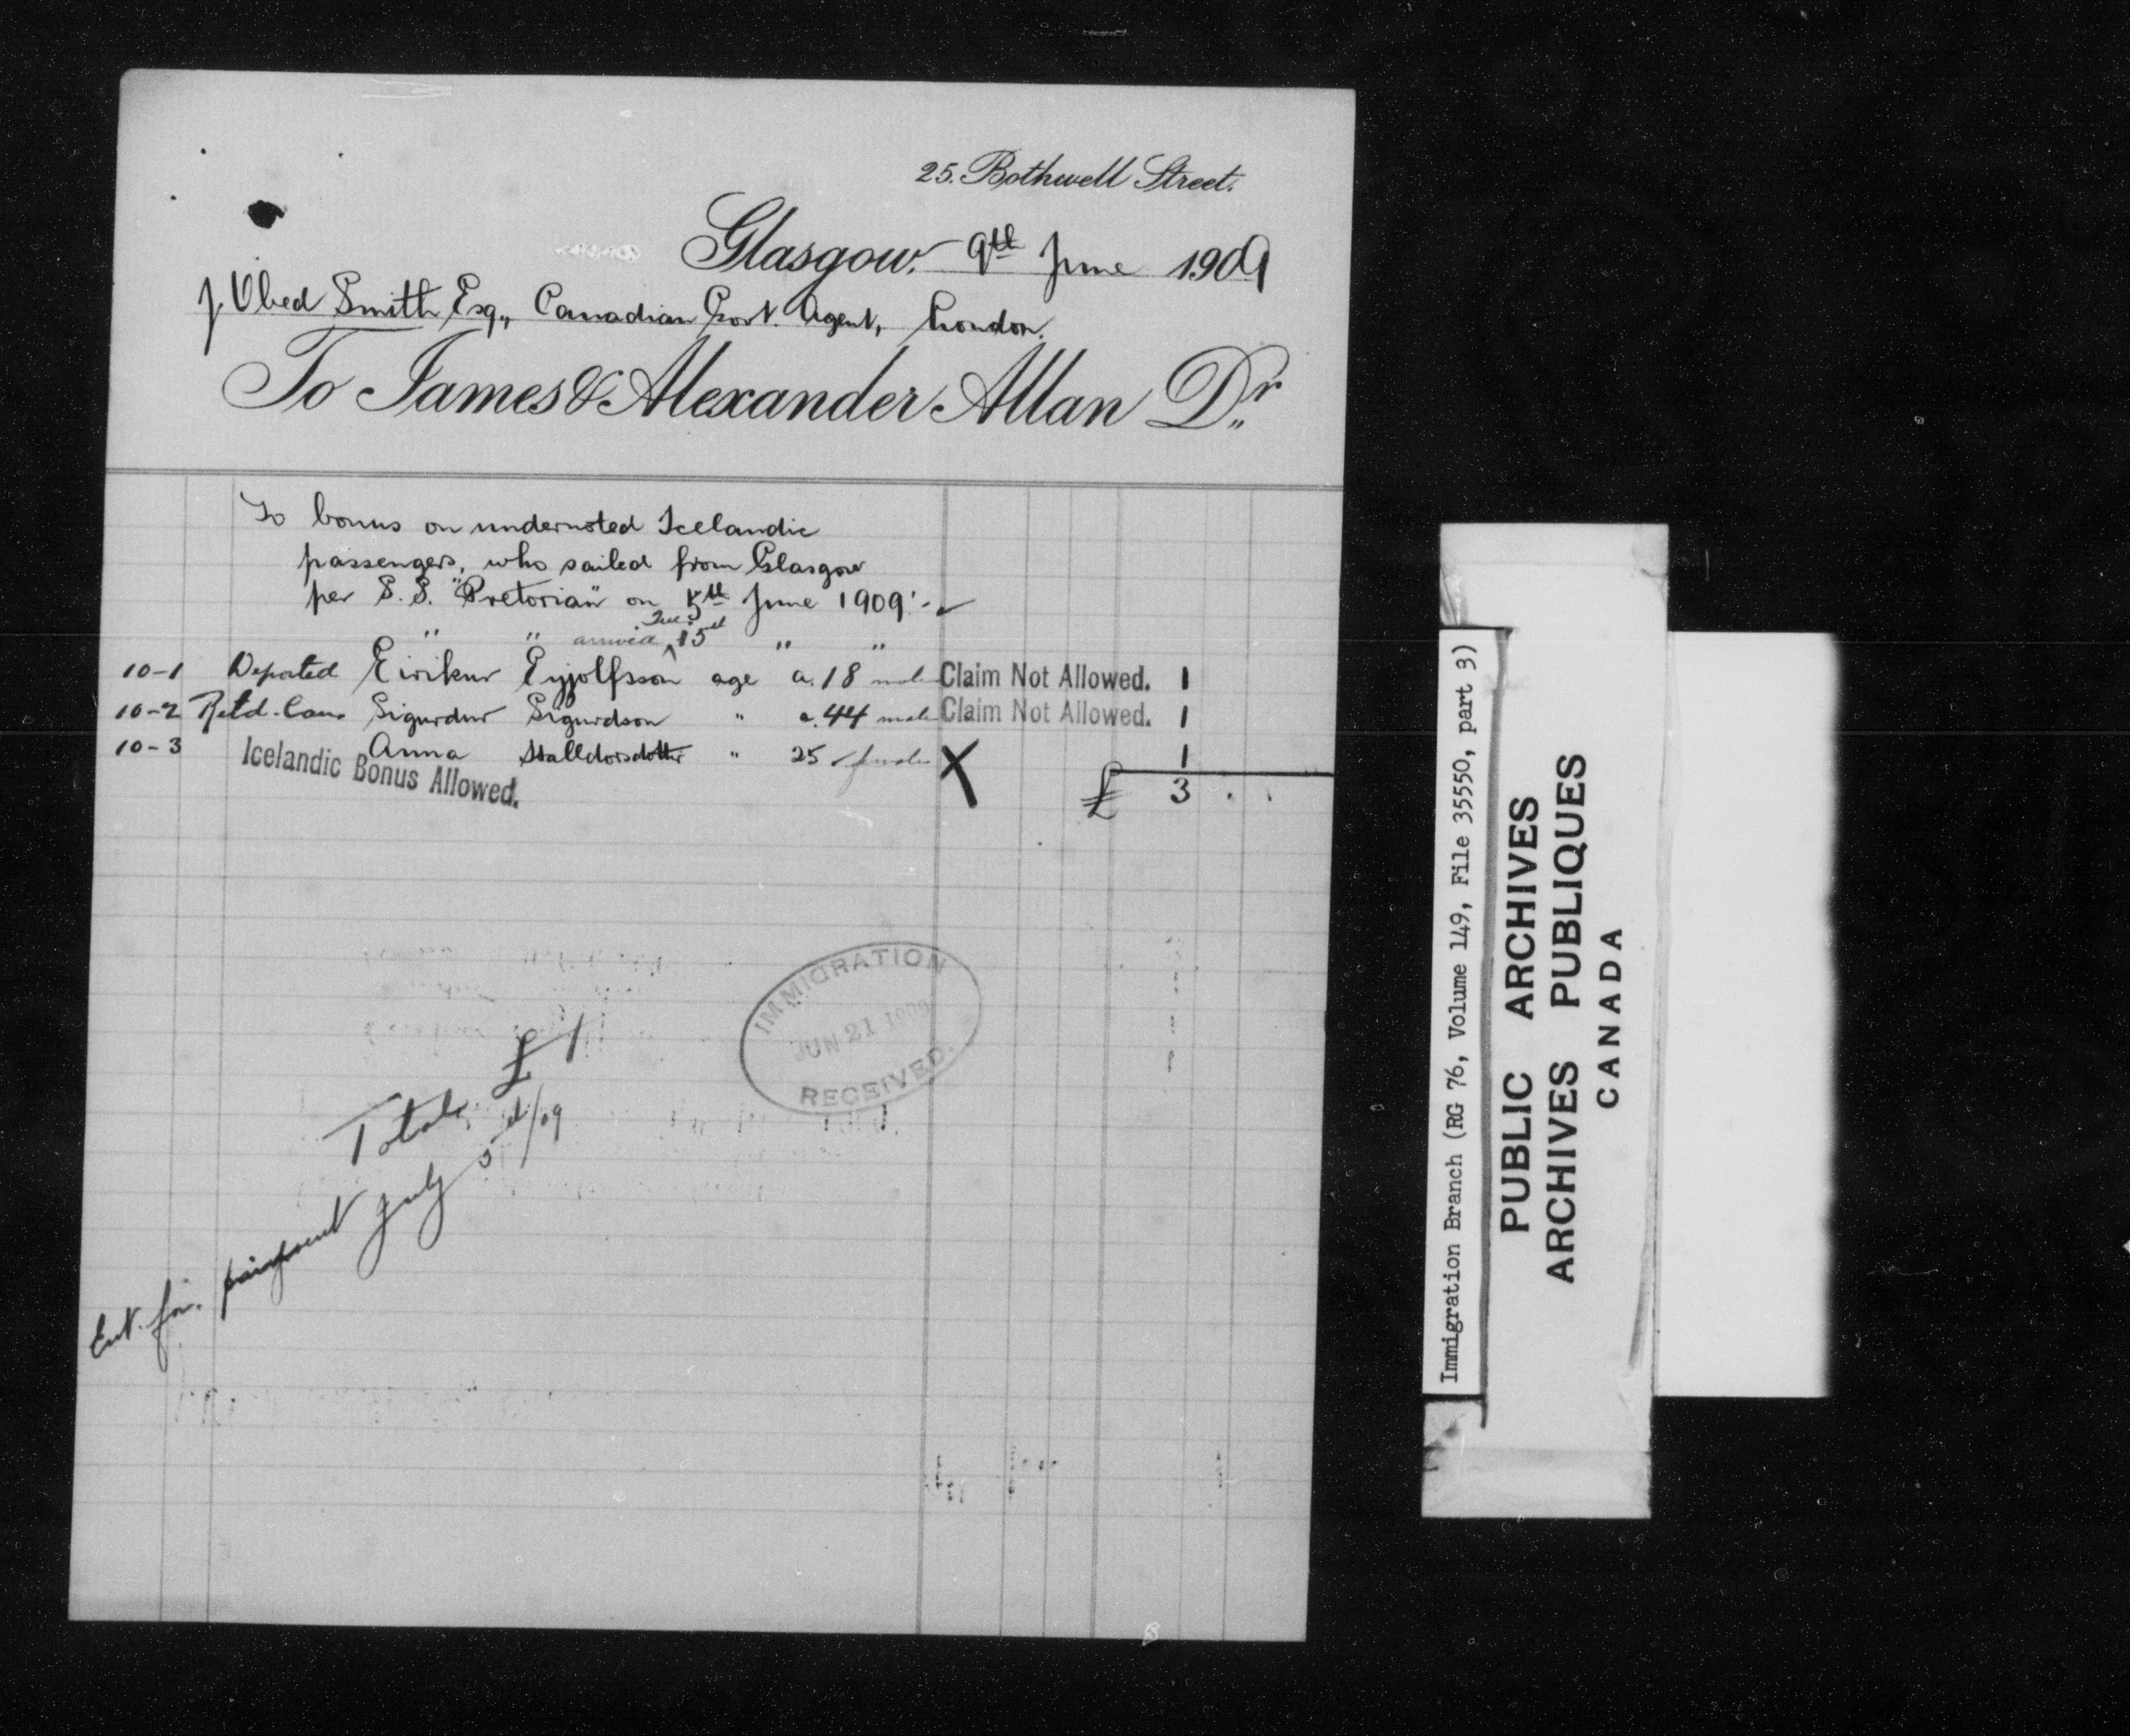 25. Bothwell Street.
Glasgow. 9th June 1909
J. Obed Smith Esq., Canadian Govt. Agent, London.
To James & Alexander Allan Dr.
To bonus on undernoted Icelandic
passengers, who sailed from Glasgow
per S.S. "Pretorian" on 5th June 1909:-
" " arrived Que. 15th " "
10-1 Deported Eirikur Eyjolfsson age a. 18 male Claim Not Allowed. 1
10-2 Retd. Can. Sigurdur Sigurdson " a. 44 male Claim Not Allowed. 1
10-3 Anna Halldorsdottir " 25 female X 1
Icelandic Bonus Allowed.
£ 3 . .
IMMIGRATION
JUN 21 1909
RECEIVED.
Total, £1
Ent. for payment July 5th/09
Immigration Branch (RG 76, Volume 149, File 35550, part 3)
PUBLIC ARCHIVES
ARCHIVES PUBLIQUES
CANADA